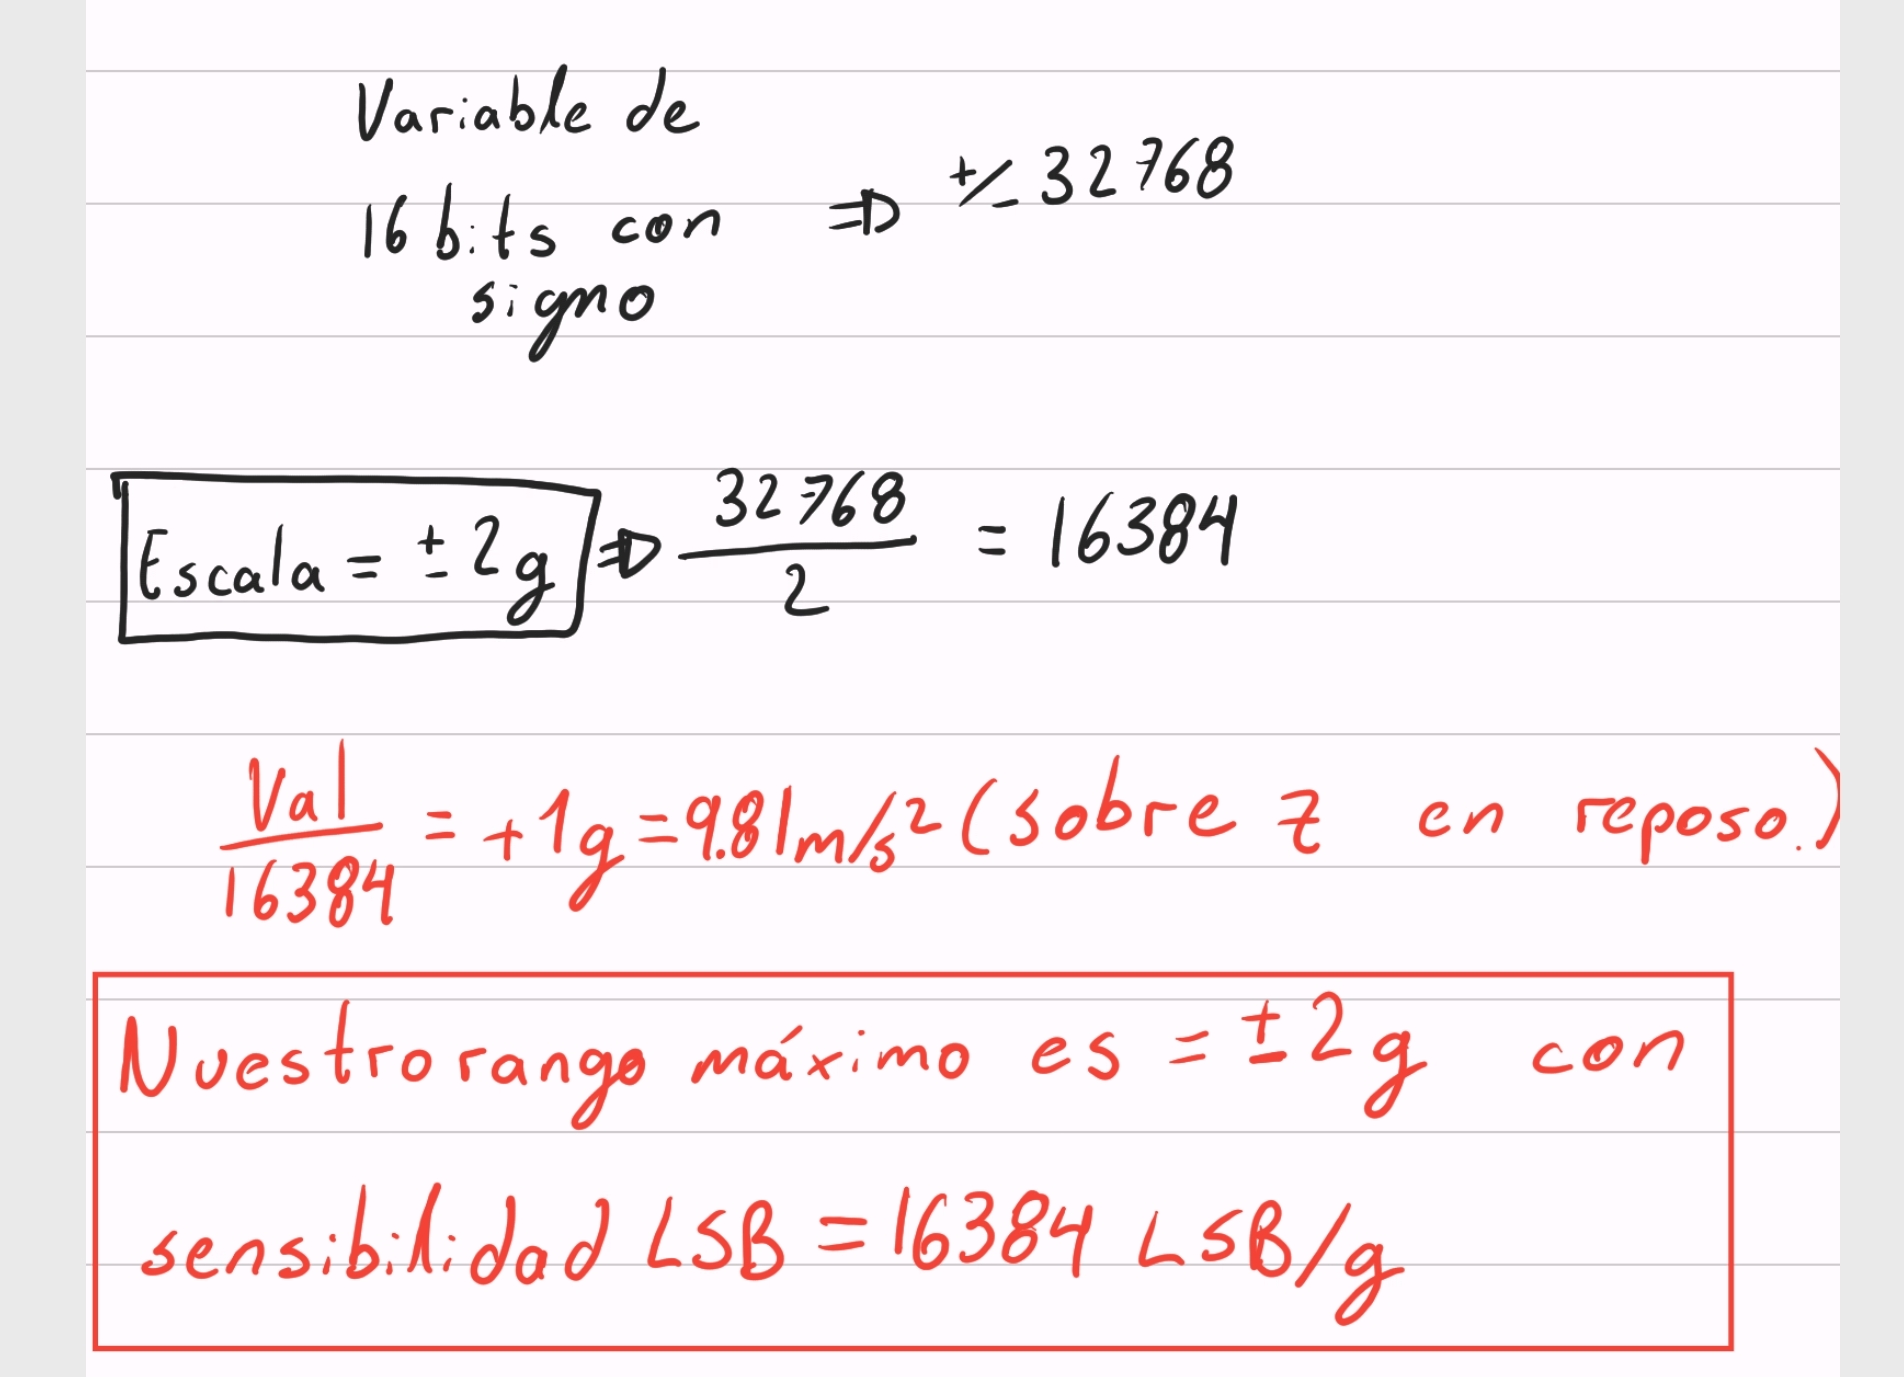 Variable de
16 bits con ⇒ +/- 32768
signo
Escala = ± 2g ⇒ 32768 / 2 = 16384
Val / 16384 = +1g = 9.81m/s² (sobre z en reposo.)
Nuestro rango máximo es = ± 2g con
sensibilidad LSB = 16384 LSB/g